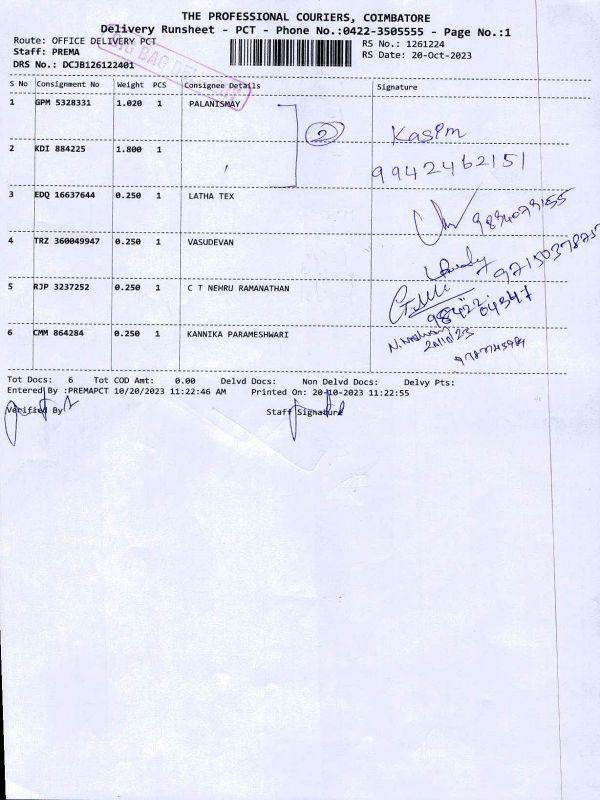 THE PROFESSIONAL COURIERS, COIMBATORE
Delivery Runsheet - PCT - Phone No.:0422-3505555 - Page No.:1
Route: OFFICE DELIVERY PCT RS No.: 1261224
Staff: PREMA RS Date: 20-Oct-2023
DRS No.: DCJB126122401
S No Consignment No Weight PCS Consignee Details Signature
1 GPM 5328331 1.020 1 PALANISMAY
2 Kasim
2 KDI 884225 1.800 1
9942462151
3 EDQ 16637644 0.250 1 LATHA TEX
4 TRZ 360049947 0.250 1 VASUDEVAN
5 RJP 3237252 0.250 1 C T NEHRU RAMANATHAN
98422 04347
6 CMM 864284 0.250 1 KANNIKA PARAMESHWARI
Tot Docs: 6 Tot COD Amt: 0.00 Delvd Docs: Non Delvd Docs: Delvy Pts:
Entered By :PREMAPCT 10/20/2023 11:22:46 AM Printed On: 20-10-2023 11:22:55
Verified By Staff Signature